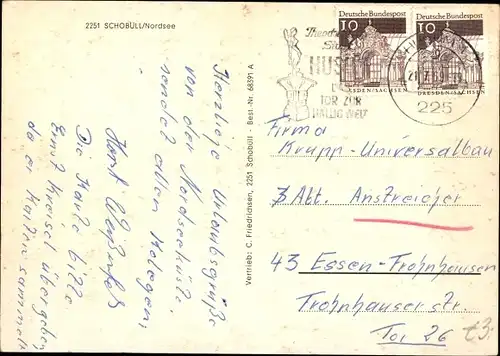 2251 SCHOBÜLL/Nordsee
Herzliche Urlaubsgrüße
von der Nordseeküste
sendet allen Kollegen,
Horst
Die Karte bitte
Ernst Kreisel übergeben
da er Karten sammelt
Vertrieb: C. Friedrichsen, 2251 Schobüll - Best.-Nr. 68391 A
Deutsche Bundespost
10
DRESDEN/SACHSEN
Deutsche Bundespost
10
DRESDEN/SACHSEN
Theodor
HUSUM
TOR ZUR
HALLIG WELT
225
Firma
Krupp-Universalbau
Abt. Anstreicher
43 Essen-Frohnhausen
Frohnhauser str.
Tor 26